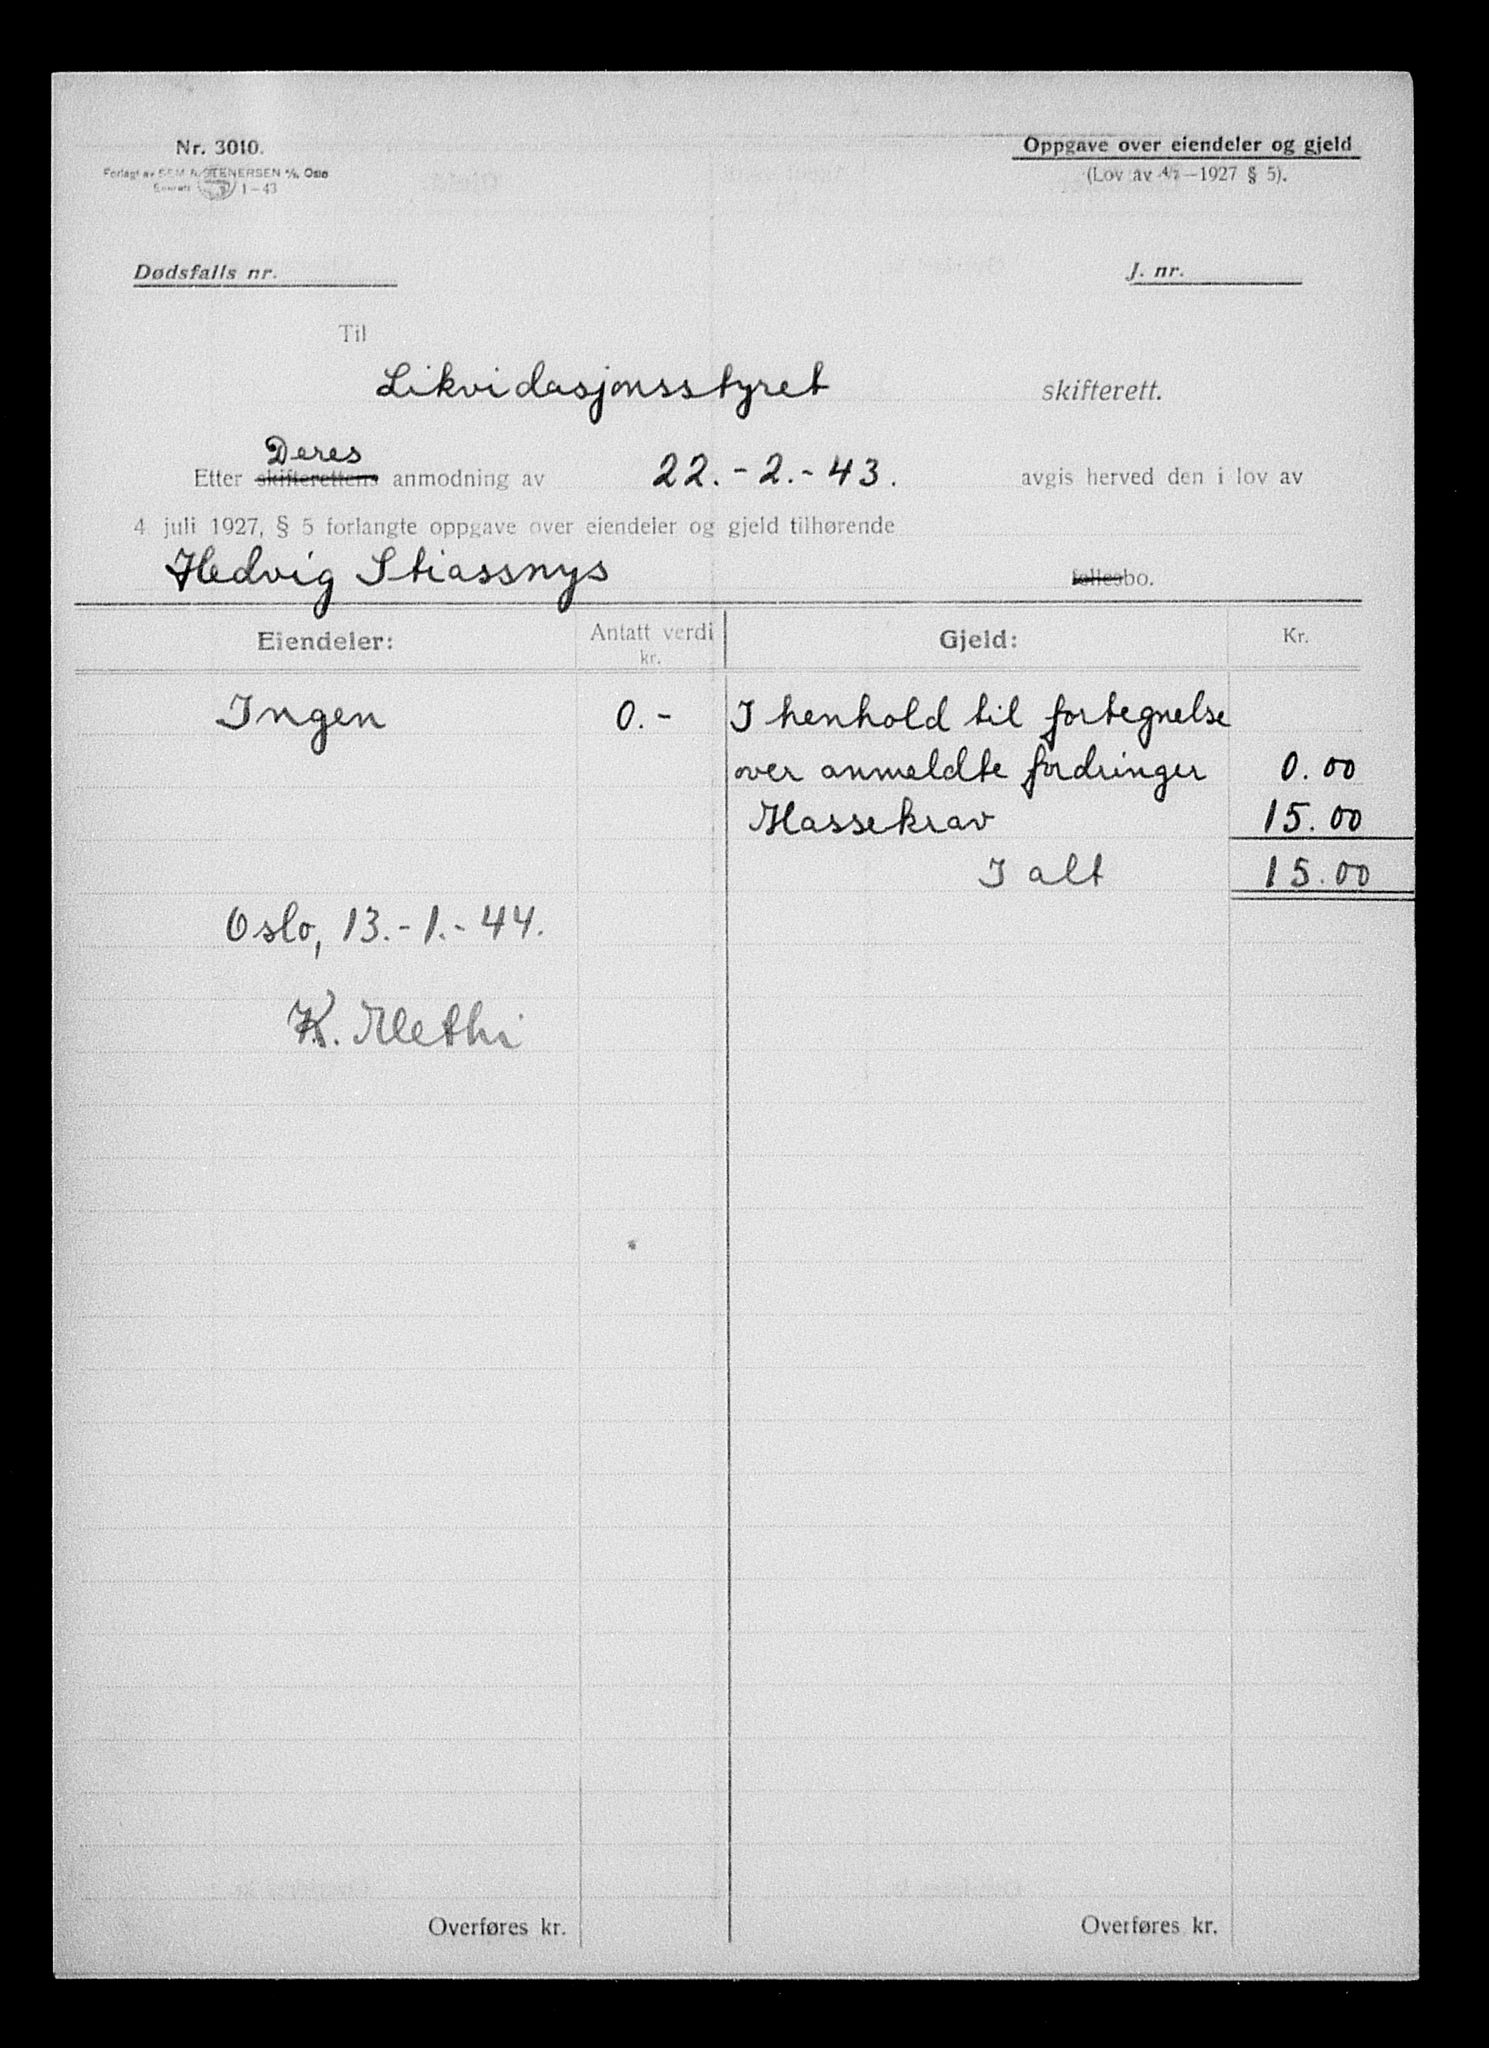 Nr. 3010.
Forlagt av SEM & STENERSEN A/S, Oslo
1-43
Oppgave over eiendeler og gjeld
(Lov av 4/7—1927 § 5).
Dødsfalls nr.
J. nr.
Til
Likvidasjonsstyret skifterett.
Deres
Etter skifterettens anmodning av 22.-2.-43. avgis herved den i lov av
4 juli 1927, § 5 forlangte oppgave over eiendeler og gjeld tilhørende
Hedvig Stiassnys fellesbo.
Eiendeler: Antatt verdi kr. Gjeld: Kr.
Ingen 0.- I henhold til fortegnelse
over anmeldte fordringer 0.00
Massekrav 15.00
I alt 15.00
Oslo, 13.-1.-44.
K. Methi
Overføres kr. Overføres kr.